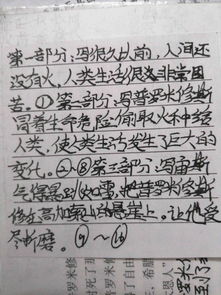 第一部分:写很久以前,人间还
没有火,人类生活很艰非常困
苦。① 第二部分:写普罗米修斯
冒着生命危险偷取火种给
人类,使人类生活发生了巨大的
变化。②~⑧第三部分:写宙斯
气得 把普罗米修斯
在高加索山的悬崖上。让他受
尽折磨。⑨~